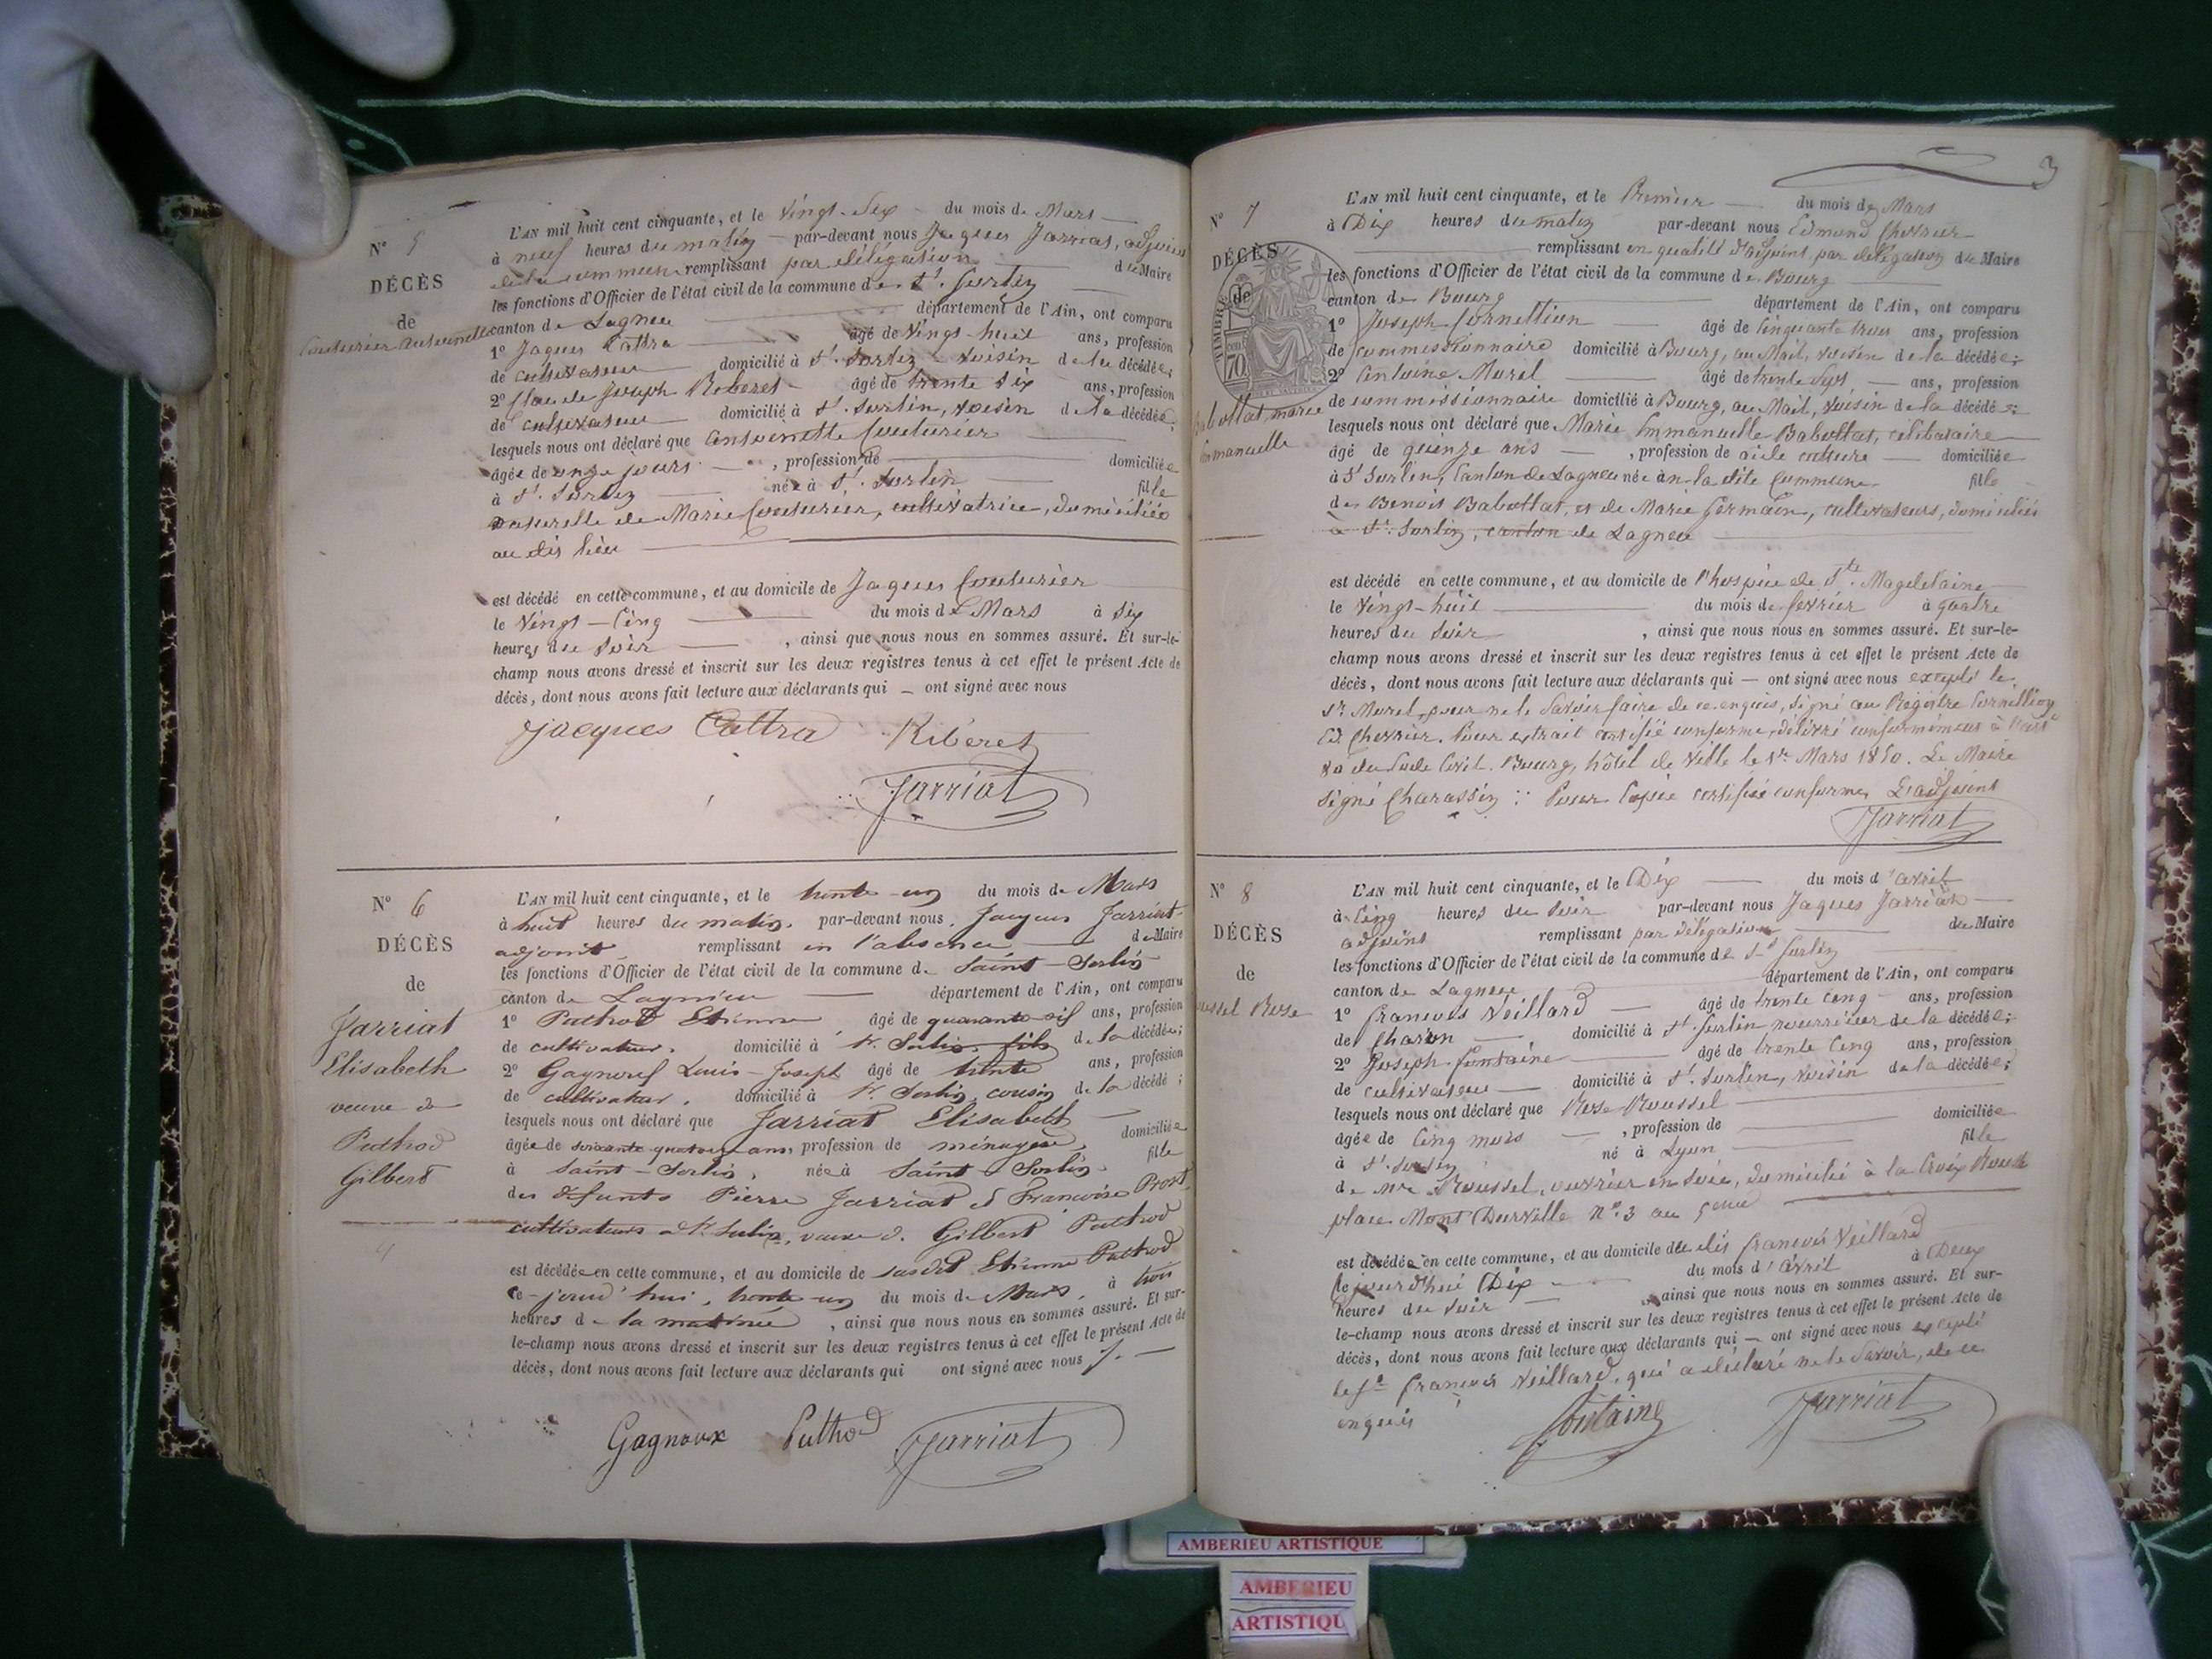 N° 5
DÉCÈS
de
Couturier Antoinette
L'AN mil huit cent cinquante, et le Vingt-Six du mois de Mars
à neuf heures du matin par-devant nous Jaques Jarriat, adjoint
de la commune remplissant par délégation du Maire
les fonctions d'Officier de l'état civil de la commune de St. Sorlin
canton de Lagneu département de l'Ain, ont comparu
1° Jaques Cattra âgé de Vingt-huit ans, profession
de cultivateur domicilié à St. Sorlin voisin de la décédée;
2° Claude Joseph Riberet âgé de trente Six ans, profession
de cultivateur domicilié à St. Sorlin, voisin de la décédée,
lesquels nous ont déclaré que Antoinette Couturier
âgée de onze jours, profession de domiciliée
à St. Sorlin née à St. Sorlin fille
naturelle de Marie Couturier, cultivatrice, domiciliée
au dit lieu
est décédé en cette commune, et au domicile de Jaques Couturier
le Vingt-Cinq du mois de Mars à Six
heures du Soir, ainsi que nous nous en sommes assuré. Et sur-le-
champ nous avons dressé et inscrit sur les deux registres tenus à cet effet le présent Acte de
décès, dont nous avons fait lecture aux déclarants qui ont signé avec nous
Jacques Cattra Ribéret
Jarriat
N° 6
DÉCÈS
de
Jarriat
Elisabeth
veuve de
Puthod
Gilbert
L'AN mil huit cent cinquante, et le trente-un du mois de Mars
à huit heures du matin, par-devant nous, Jacques Jarriat
adjoint remplissant en l'absence du Maire
les fonctions d'Officier de l'état civil de la commune de Saint-Sorlin
canton de Lagnieu département de l'Ain, ont comparu
1° Puthod Etienne âgé de quarante six ans, profession
de cultivateur, domicilié à St. Sorlin, fils de la décédée;
2° Gagneux Louis-Joseph âgé de trente ans, profession
de cultivateur, domicilié à St. Sorlin, cousin de la décédé;
lesquels nous ont déclaré que Jarriat Elisabeth
âgée de soixante quatorze ans, profession de ménagère domiciliée
à Saint-Sorlin, née à Saint-Sorlin fille
des défunts Pierre Jarriat et Françoise Prost
cultivateurs à St. Sorlin, veuve de Gilbert Puthod
est décédée en cette commune, et au domicile de susdit Etienne Puthod
ce-jourd'hui, trente-un du mois de Mars, à trois
heures de la matinée, ainsi que nous nous en sommes assuré. Et sur-
le-champ nous avons dressé et inscrit sur les deux registres tenus à cet effet le présent Acte de
décès, dont nous avons fait lecture aux déclarants qui ont signé avec nous
Gagneux Puthod Jarriat
3
N° 7
DÉCÈS
de
TIMBRE
70
Babollat marie
Emmanuelle
L'AN mil huit cent cinquante, et le Premier du mois de Mars
à Dix heures du matin par-devant nous Edmond Chevrier
remplissant en qualité d'adjoint, par délégation du Maire
les fonctions d'Officier de l'état civil de la commune de Bourg
canton de Bourg département de l'Ain, ont comparu
1° Joseph Cornillion âgé de Cinquante trois ans, profession
de commissionnaire domicilié à Bourg, au Mail, voisin de la décédée;
2° Antoine Morel âgé de trente Sept ans, profession
de commissionnaire domicilié à Bourg, au Mail, voisin de la décédée
lesquels nous ont déclaré que Marie Emmanuelle Babollat, célibataire
âgé de quinze ans, profession de aide culture domiciliée
à St Sorlin, Canton de Lagneu née en la dite Commune fille
de Benoit Babollat, et de Marie Germain, cultivateurs, domiciliés
à St. Sorlin, canton de Lagneu
est décédé en cette commune, et au domicile de l'hospice de Ste. Magdelaine
le Vingt-huit du mois de février à quatre
heures du Soir, ainsi que nous nous en sommes assuré. Et sur-le-
champ nous avons dressé et inscrit sur les deux registres tenus à cet effet le présent Acte de
décès, dont nous avons fait lecture aux déclarants qui — ont signé avec nous excepté le
Sr Morel, pour ne le Savoir faire de ce enquis, Signé au Registre Cornillion
Ed. Chevrier. Pour extrait certifié conforme, délivré conformément à l'art
80 du Code Civil. Bourg, hôtel de Ville le 1er Mars 1850. Le Maire
Signé Charassin: Pour Copie certifiée conforme, L'adjoint
Jarriat
N° 8
DÉCÈS
de
Roussel Rose
L'AN mil huit cent cinquante, et le Dix du mois d'avril
à Cinq heures du Soir par-devant nous Jaques Jarriat
adjoint remplissant par délégation du Maire
les fonctions d'Officier de l'état civil de la commune de St Sorlin
canton de Lagneu département de l'Ain, ont comparu
1° François Veillard âgé de trente Cinq ans, profession
de Charon domicilié à St. Sorlin nourricier de la décédée;
2° Joseph Fontaine âgé de trente Cinq ans, profession
de cultivateur domicilié à St. Sorlin, voisin de la décédée;
lesquels nous ont déclaré que Rose Roussel
âgée de Cinq mois, profession de domiciliée
à St. Sorlin né à Lyon fille
de Mr Roussel, ouvrier en Soie, domicilié à la Croix Rousse
place Mont Durville n°. 3 au 5eme
est décédée en cette commune, et au domicile du dit François Veillard
Cejourd'hui Dix du mois d'avril à Deux
heures du Soir ainsi que nous nous en sommes assuré. Et sur-
le-champ nous avons dressé et inscrit sur les deux registres tenus à cet effet le présent Acte de
décès, dont nous avons fait lecture aux déclarants qui — ont signé avec nous excepté
le Sr François Veillard, qui a déclaré ne le Savoir, de ce
enquis
Fontaine Jarriat
AMBERIEU ARTISTIQUE
AMBERIEU
ARTISTIQU